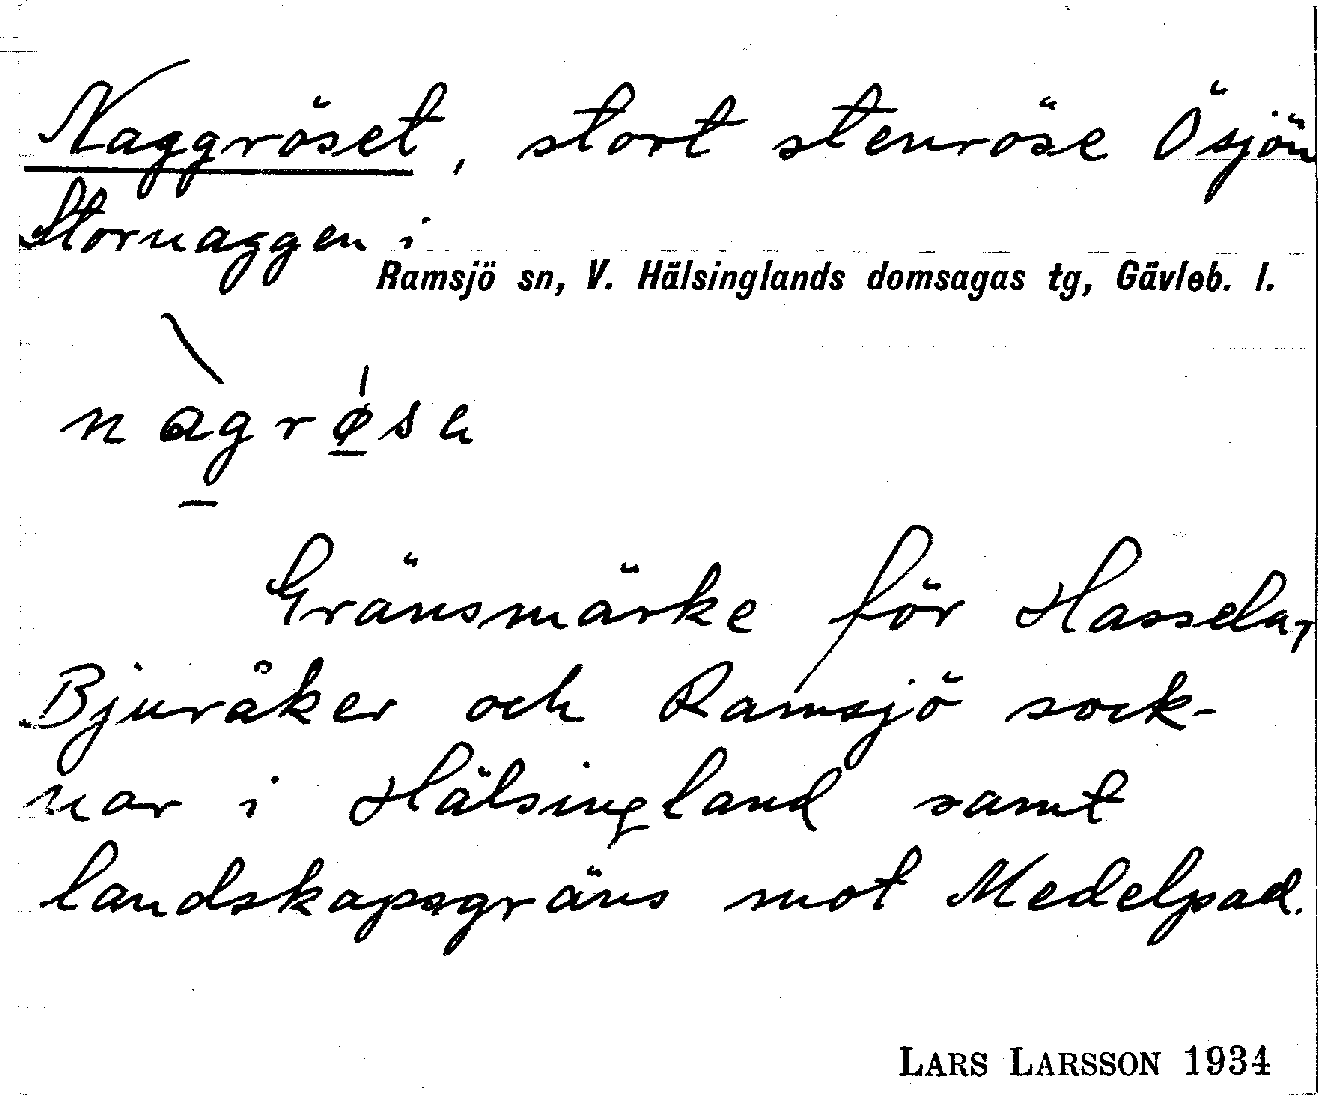 Naggröset, stort stenröse Ö sjön
Stornaggen i
Ramsjö sn, V. Hälsinglands domsagas tg, Gävleb. l.
nàgrø̱sa
Gränsmärke för Hassela,
Bjuråker och Ramsjö sock-
nar i Hälsingland samt
landskapsgräns mot Medelpad.
LARS LARSSON 1934